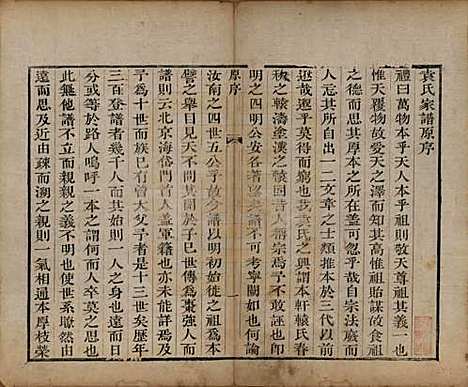 袁氏家譜原序
禮曰萬物本乎天人本乎祖則敬天尊祖其義一也
惟天覆物故愛天之澤而知其高惟祖貽謀故食祖
之德而思其厚本之不忘葢可忽乎哉自宗法廢而
人忘其所自出一二文章之士頗推本於三代以前
遐哉邈矣然時而窮也我袁氏之興謂本軒轅氏春
秋之轅濤塗漢之轅固昔人謂宗為予不敢誣也即
明之四明公安各著望矣譜不可考寧闕如何論
原序
一
汝南之四世五公乎故今譜以明初始徙之祖為本
譬之舉頭天下問其關於子已世傳為棗強人而
譜則云北京海岱門昔人葢軍籍也亦未能盡详
予為十世而族已有曾大父予者是十三世矣歷年
三百登譜者千人而其始則一人之身也遠而日
分或等於路人嗚呼一本之謂何而人卒莫之思
此無他譜不立親親之義不明也使世系瞭然由
遠而思及近由疎而溯之親則一氣相通本厚枝榮